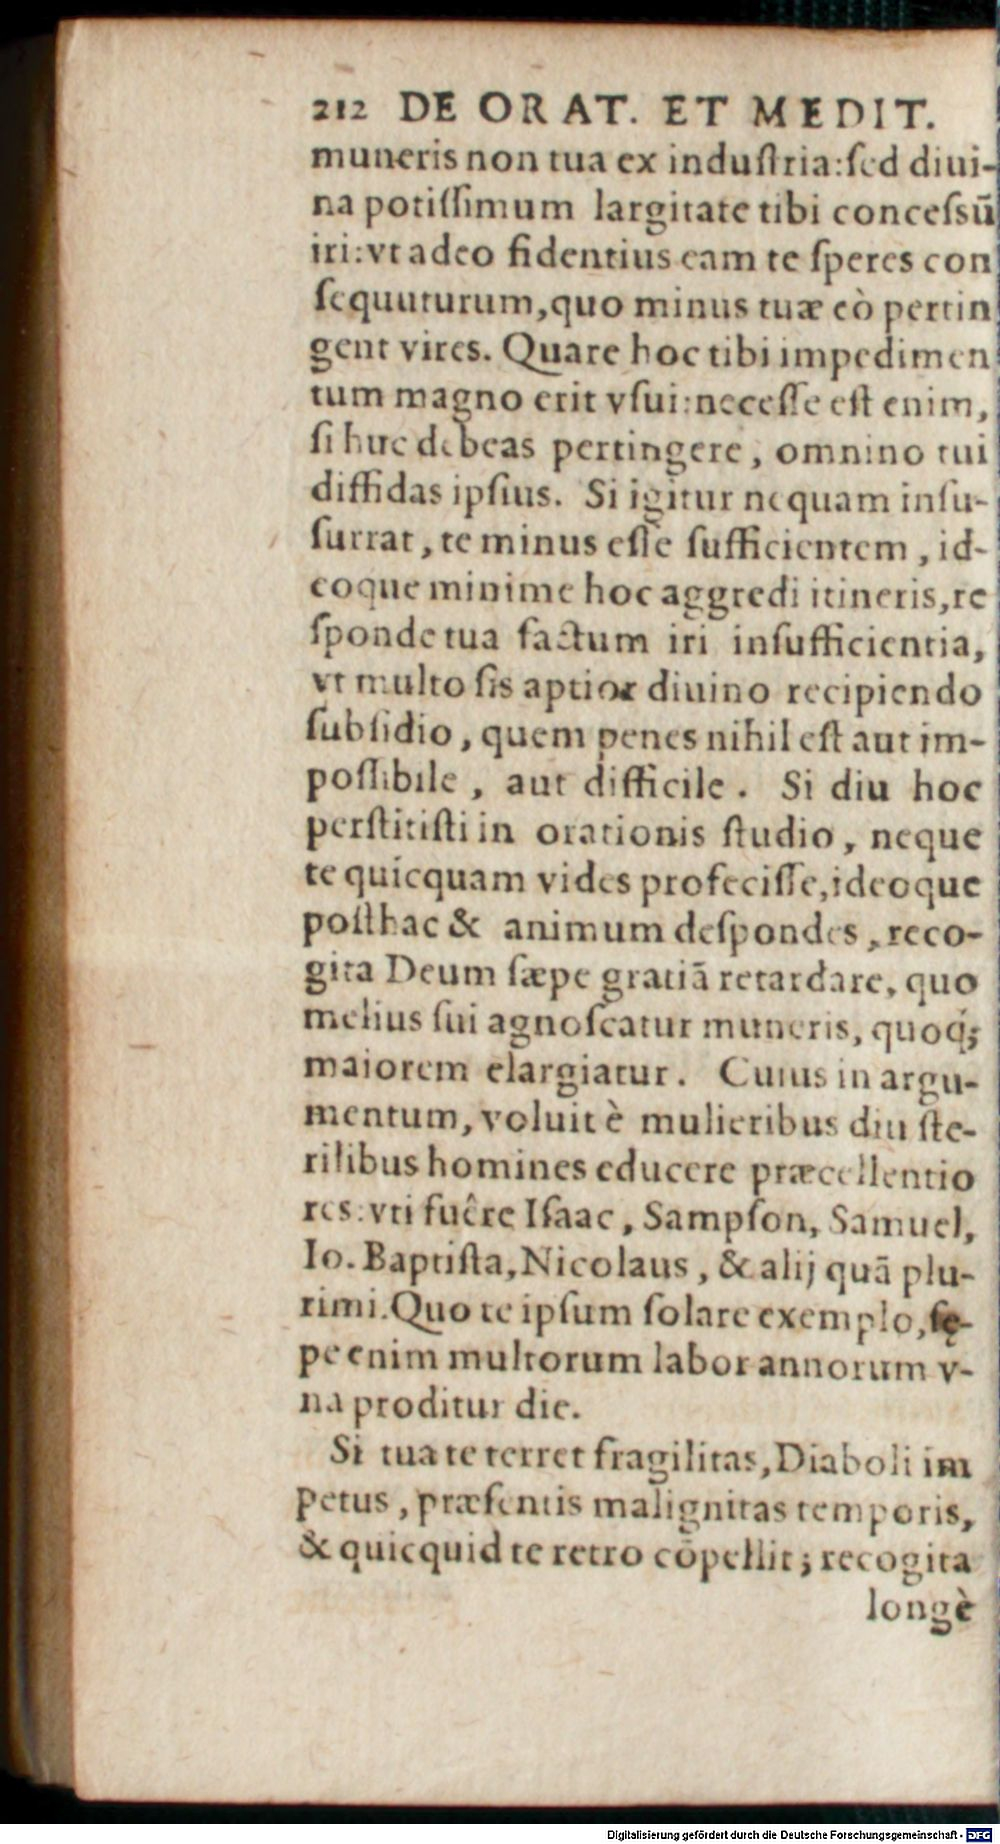 212 DE ORAT. ET MEDIT.
muneris non tua ex induſtria:ſed diui-
na potiſſimum largitate tibi conceſsū
iri:vt adeo fidentius eam te ſperes con
ſequuturum,quo minus tuæ eò pertin
gent vires. Quare hoc tibi impedimen
tum magno erit vſui:neceſſe eſt enim,
ſi huc debeas pertingere, omnino tui
diffidas ipſius. Si igitur nequam inſu-
ſurrat, te minus eſſe ſufficientem, id-
eoque minime hoc aggredi itineris,re
ſponde tua factum iri inſufficientia,
vt multo ſis aptior diuino recipiendo
ſubſidio, quem penes nihil eſt aut im-
poſſibile, aut difficile. Si diu hoc
perſtitiſti in orationis ſtudio, neque
te quicquam vides profeciſſe,ideoque
poſthac & animum deſpondes, reco-
gita Deum ſæpe gratiā retardare, quo
melius ſui agnoſcatur muneris, quoq́;
maiorem elargiatur. Cuius in argu-
mentum, voluit è mulieribus diu ſte-
rilibus homines educere præcellentio
res:vti fuêre Iſaac, Sampſon, Samuel,
Io. Baptiſta,Nicolaus, & alij quā plu-
rimi.Quo te ipſum ſolare exemplo,ſę-
pe enim multorum labor annorum v-
na proditur die.
Si tua te terret fragilitas,Diaboli im
petus, præſentis malignitas temporis,
& quicquid te retro cōpellit; recogita
longè
Digitalisierung gefördert durch die Deutsche Forschungsgemeinschaft - DFG